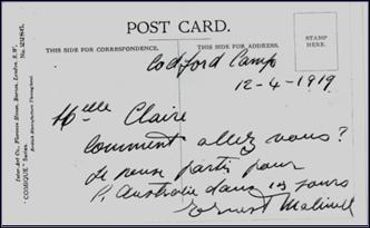 POST CARD.
THIS SIDE FOR CORRESPONDENCE.
THIS SIDE FOR ADDRESS.
STAMP
HERE
Inter-Art Co., Florence House, Barnes, London, S.W.
"COMIQUE" Series.
British Manufacture Throughout.
Codford Camp
12-4-1919
Melle Claire
Comment allez vous?
Je peux partir pour
l'Australie dans 10 jours
Ernest